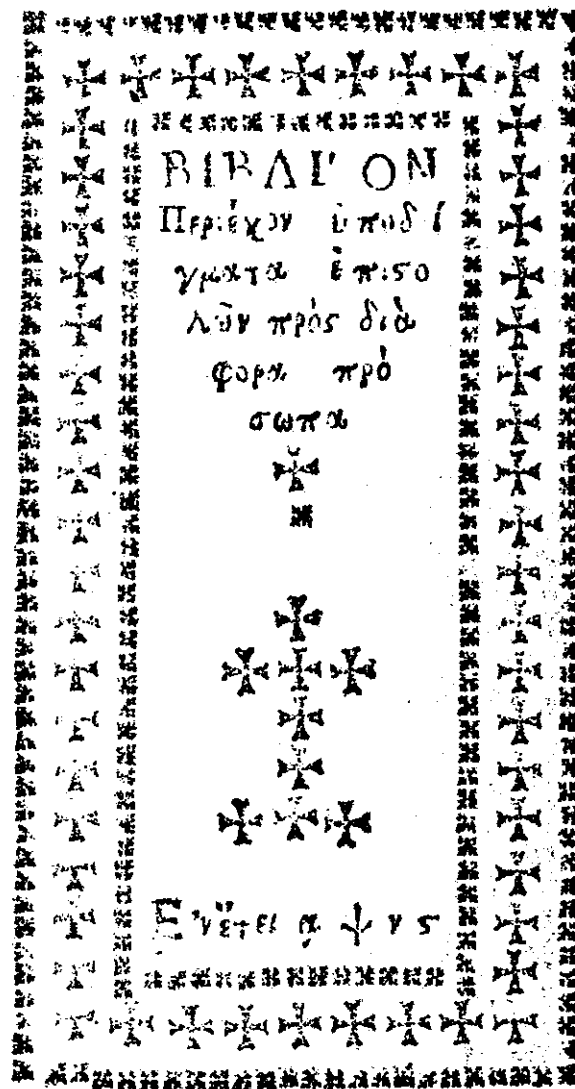 ΒΙΒΛΙ'ΟΝ
Περιέχον ὑποδ ί
γματα ἐπιϛο
λῶν πρὸς διὰ
φορα πρό
σωπα
Ε'νἔτει α ψ ν ϛ